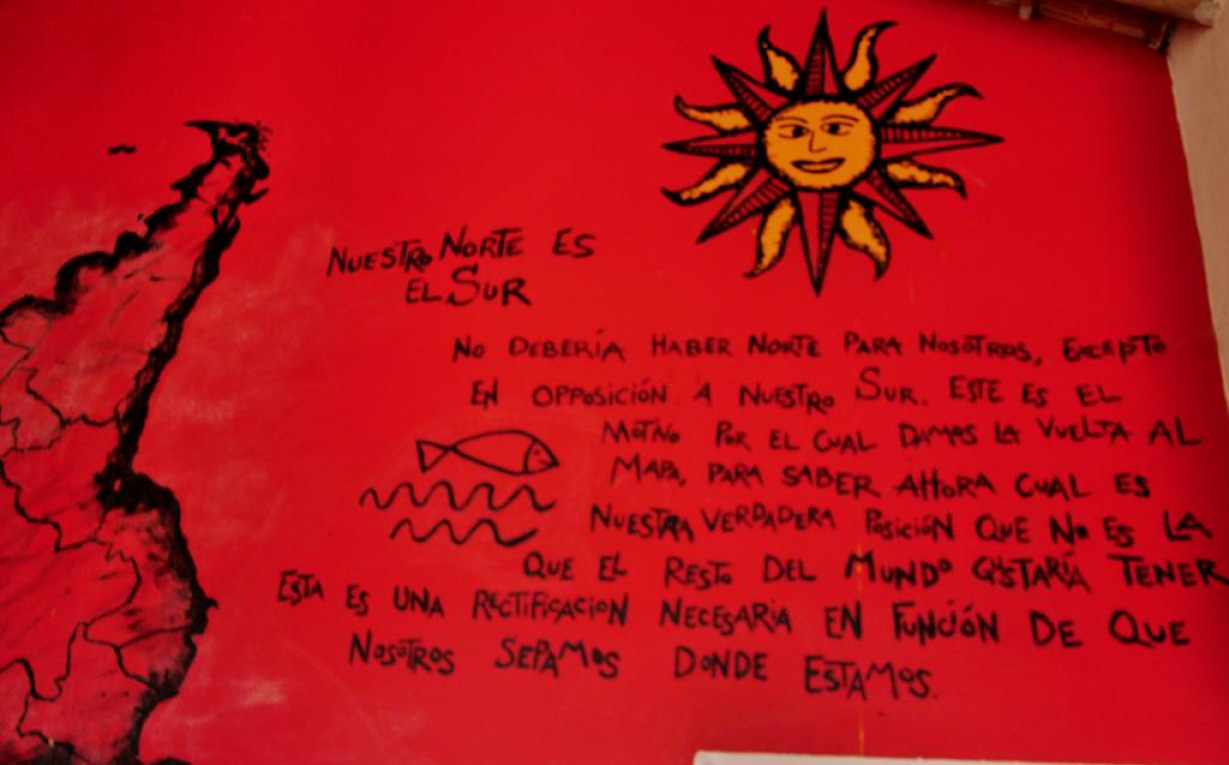 NUESTRO NORTE ES
EL SUR
NO DEBERÍA HABER NORTE PARA NOSOTROS, EXCEPTO
EN OPPOSICIÓN A NUESTRO SUR. ESTE ES EL
MOTIVO POR EL CUAL DAMOS LA VUELTA AL
MAPA, PARA SABER AHORA CUAL ES
NUESTRA VERDADERA POSICIÓN QUE NO ES LA
QUE EL RESTO DEL MUNDO GUSTARÍA TENER
ESTA ES UNA RECTIFICACION NECESARIA EN FUNCIÓN DE QUE
NOSOTROS SEPAMOS DONDE ESTAMOS.